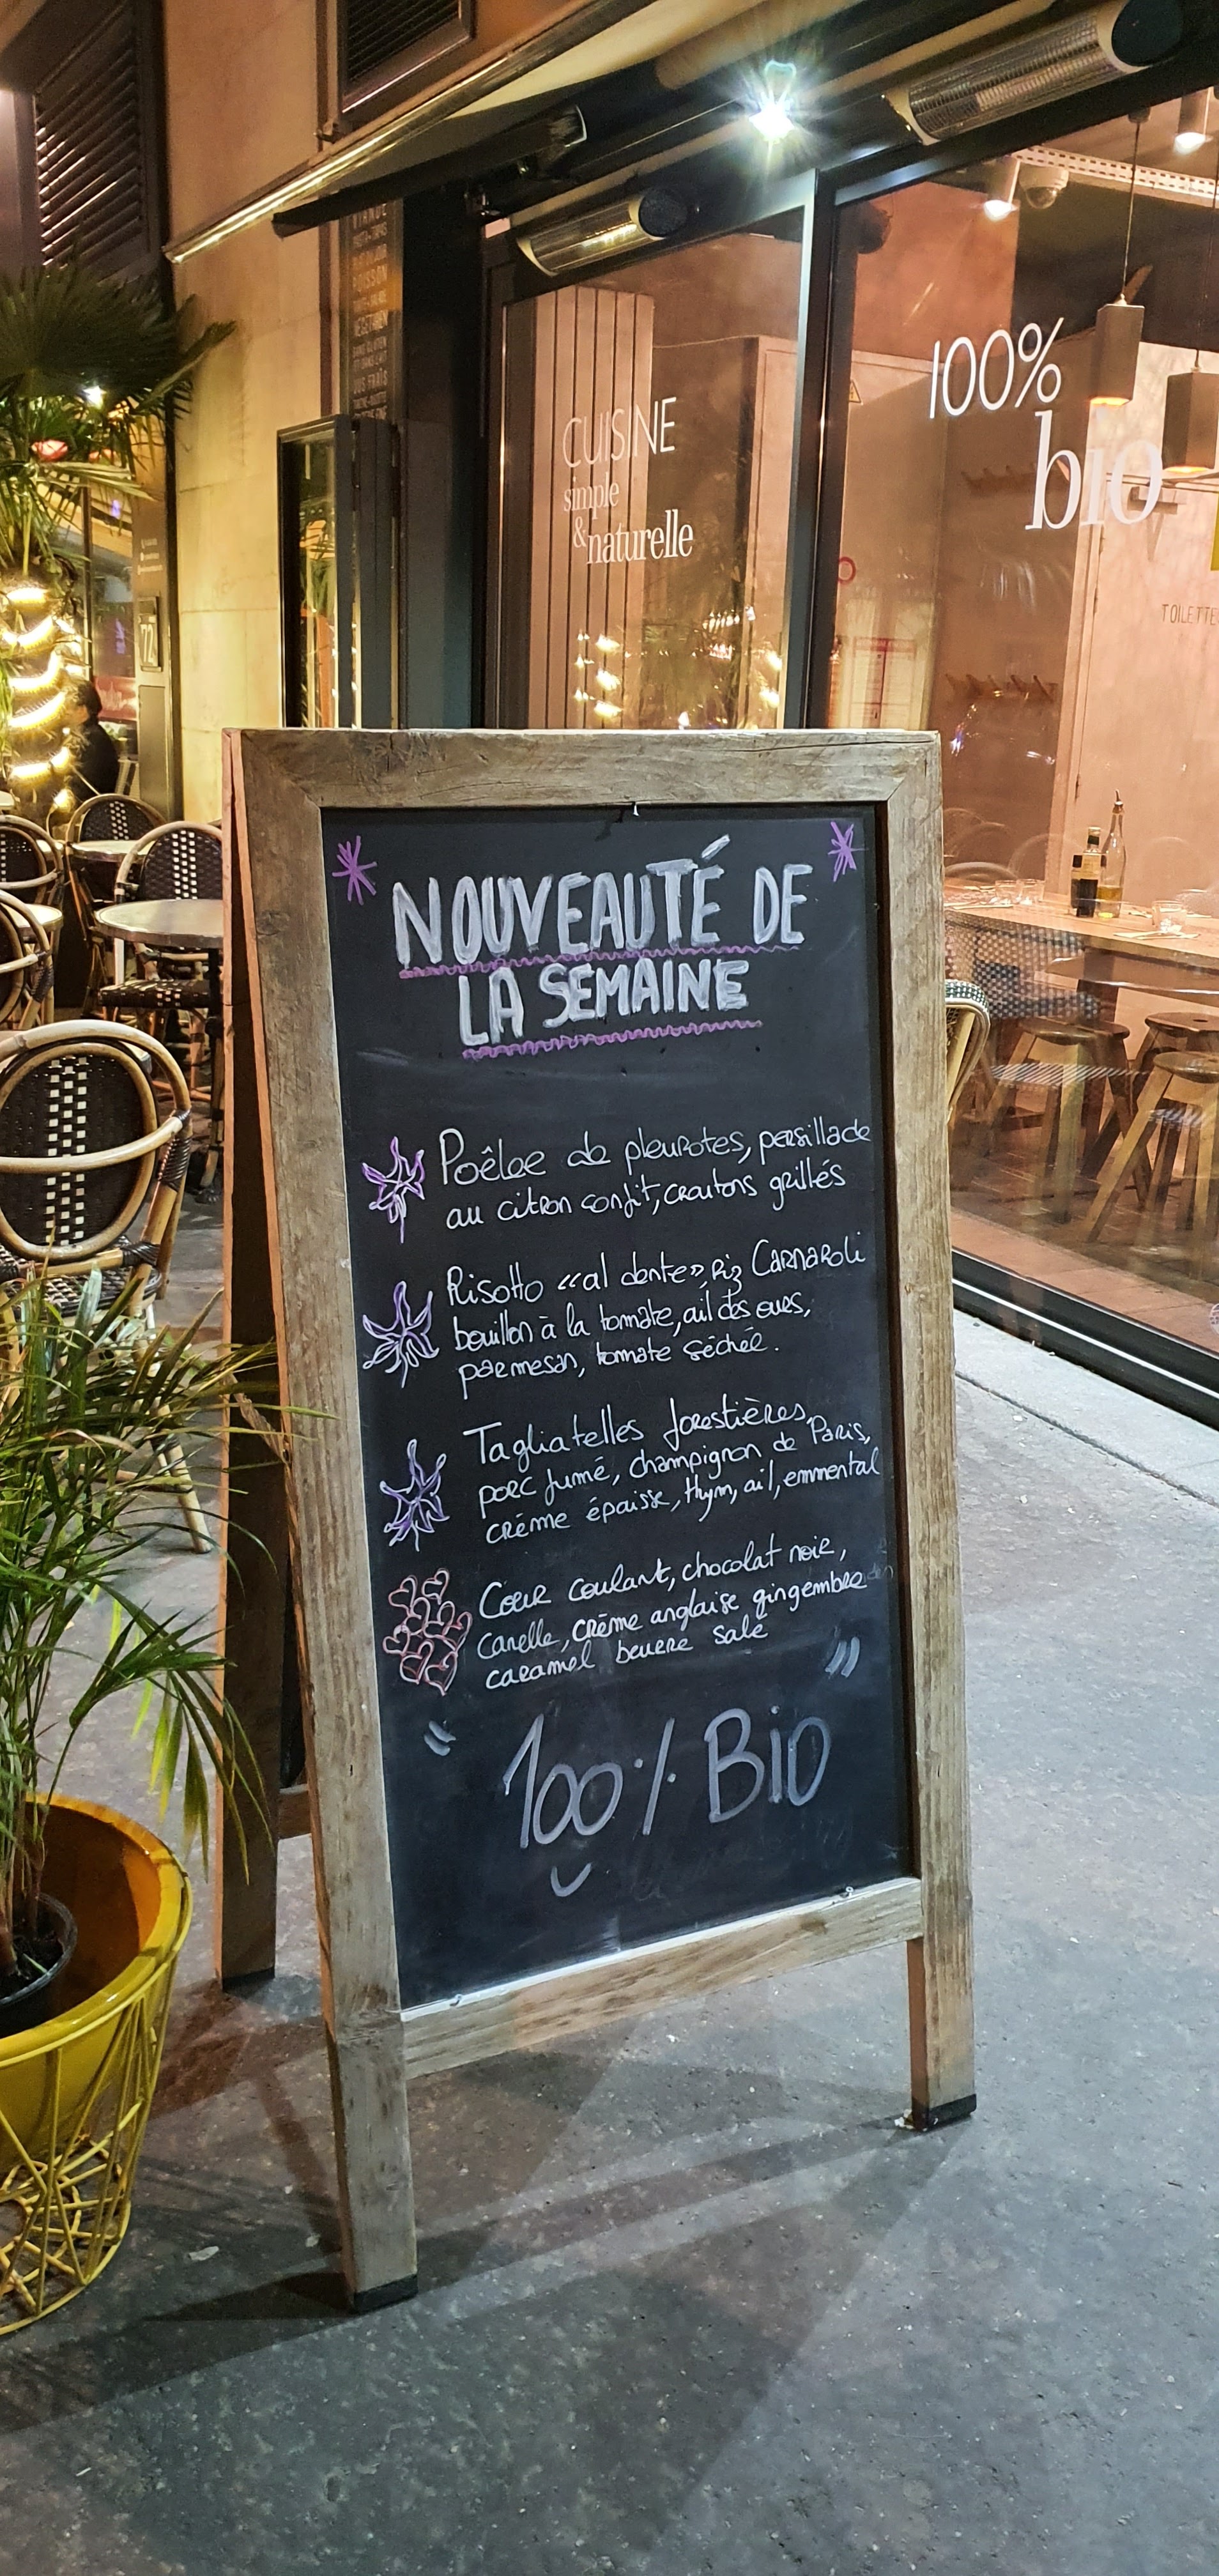 VIANDE
POISSON
CUISINE
simple
& naturelle
100%
bio
TOILETTE
72
NOUVEAUTÉ DE
LA SEMAINE
Poêlee de pleurotes, persillade
au citron confit, croutons grillés
Risotto «al dente», Riz Carnaroli
bouillon à la tomate, ail des ours,
parmesan, tomate séchée.
Tagliatelles forestières,
porc fumé, champignon de Paris,
crème épaisse, thym, ail, emmental
Coeur coulant, chocolat noir,
canelle, crème anglaise gingembre
caramel beurre salé
"100% Bio"